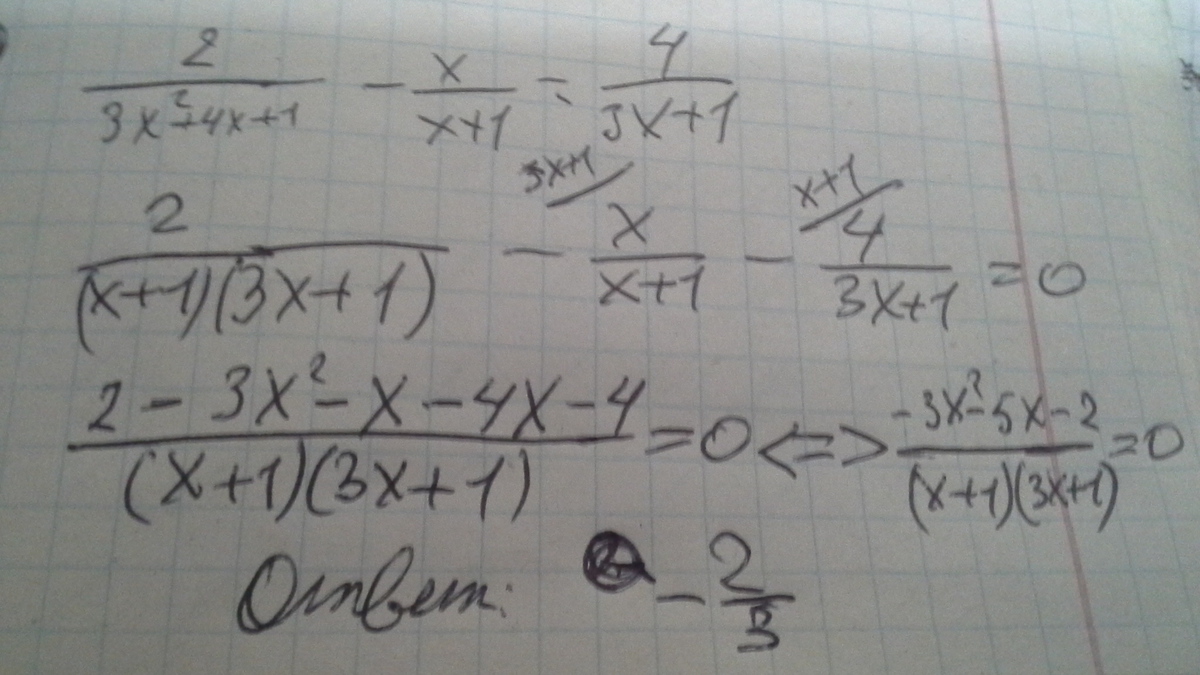 2/(3x²+4x+1) - x/(x+1) = 4/(3x+1)
2/((x+1)(3x+1)) - 3x+1/ x/(x+1) - x+1/ 4/(3x+1) = 0
(2 - 3x² - x - 4x - 4)/((x+1)(3x+1)) = 0 <=> (-3x² - 5x - 2)/((x+1)(3x+1)) = 0
Ответ: - 2/3